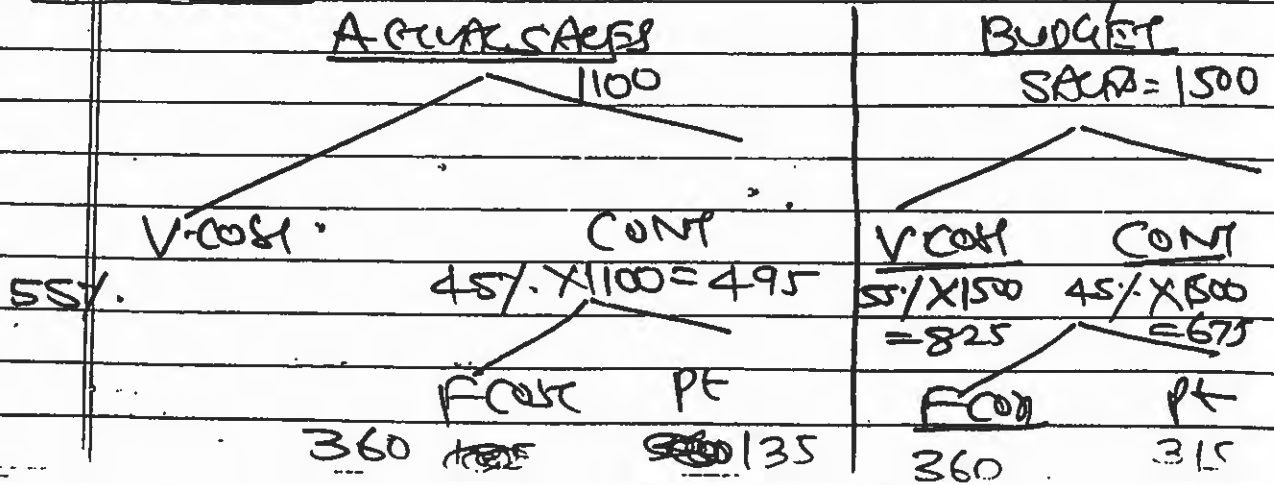 ACTUAL SALES
1100
V.COST
CONT
55%.
45% × 1100 = 495
F COST
Pt
360
135
BUDGET
SALES = 1500
V COST
CONT
55% × 1500
= 825
45% × 1500
= 675
F COST
Pt
360
315